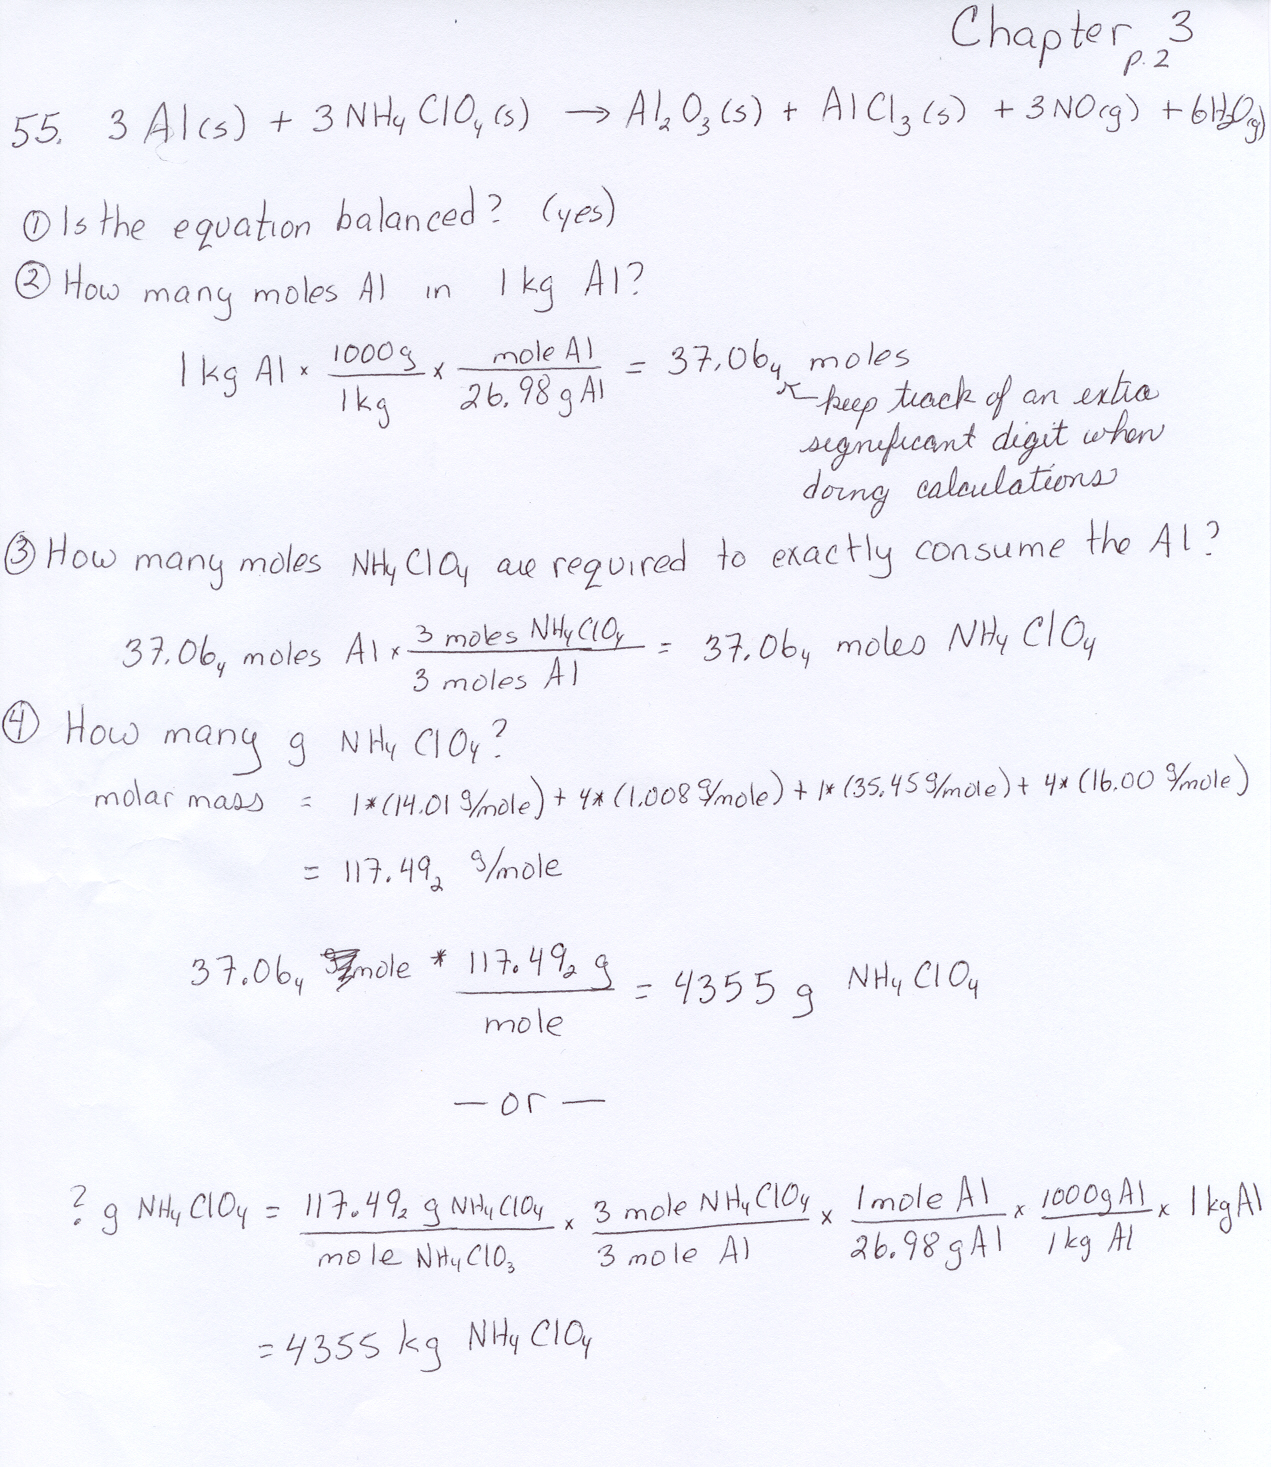 Chapter 3
p. 2
55. 3 Al(s) + 3 NH₄ClO₄(s) → Al₂O₃(s) + AlCl₃(s) + 3NO(g) + 6H₂O(g)
① Is the equation balanced? (yes)
② How many moles Al in 1 kg Al?
1 kg Al × 1000 g / 1 kg × mole Al / 26.98 g Al = 37.06₄ moles
keep track of an extra
significant digit when
doing calculations
③ How many moles NH₄ClO₄ are required to exactly consume the Al?
37.06₄ moles Al × 3 moles NH₄ClO₄ / 3 moles Al = 37.06₄ moles NH₄ClO₄
④ How many g NH₄ClO₄?
molar mass = 1*(14.01 g/mole) + 4*(1.008 g/mole) + 1*(35.45 g/mole) + 4*(16.00 g/mole)
= 117.49₂ g/mole
37.06₄ mole * 117.49₂ g / mole = 4355 g NH₄ClO₄
— or —
? g NH₄ClO₄ = 117.49₂ g NH₄ClO₄ / mole NH₄ClO₃ × 3 mole NH₄ClO₄ / 3 mole Al × 1 mole Al / 26.98 g Al × 1000g Al / 1 kg Al × 1 kg Al
= 4355 kg NH₄ClO₄